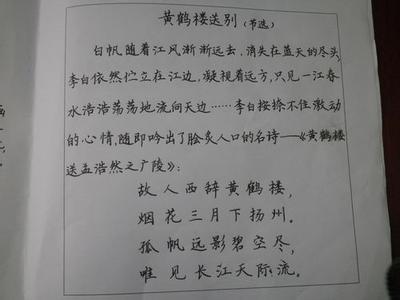 黄鹤楼送别(节选)
白帆随着江风渐渐远去,消失在蓝天的尽头,
李白依然伫立在江边,凝视着远方,只见一江春
水浩浩荡荡地流向天边……李白按捺不住激动
的心情,随即吟出了脍炙人口的名诗——《黄鹤楼
送孟浩然之广陵》:
故人西辞黄鹤楼,
烟花三月下扬州。
孤帆远影碧空尽,
唯见长江天际流。